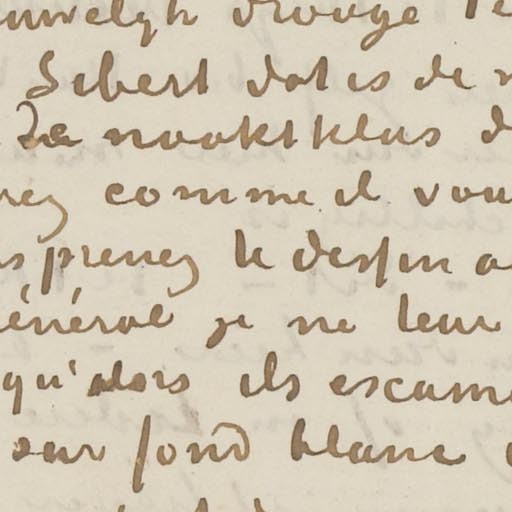 drooge
Siberl dat is de
De nooktklas d
rez comme il vou
s prenez le dessin a
énéral je ne leur
qu'alors ils escam
sur fond blanc